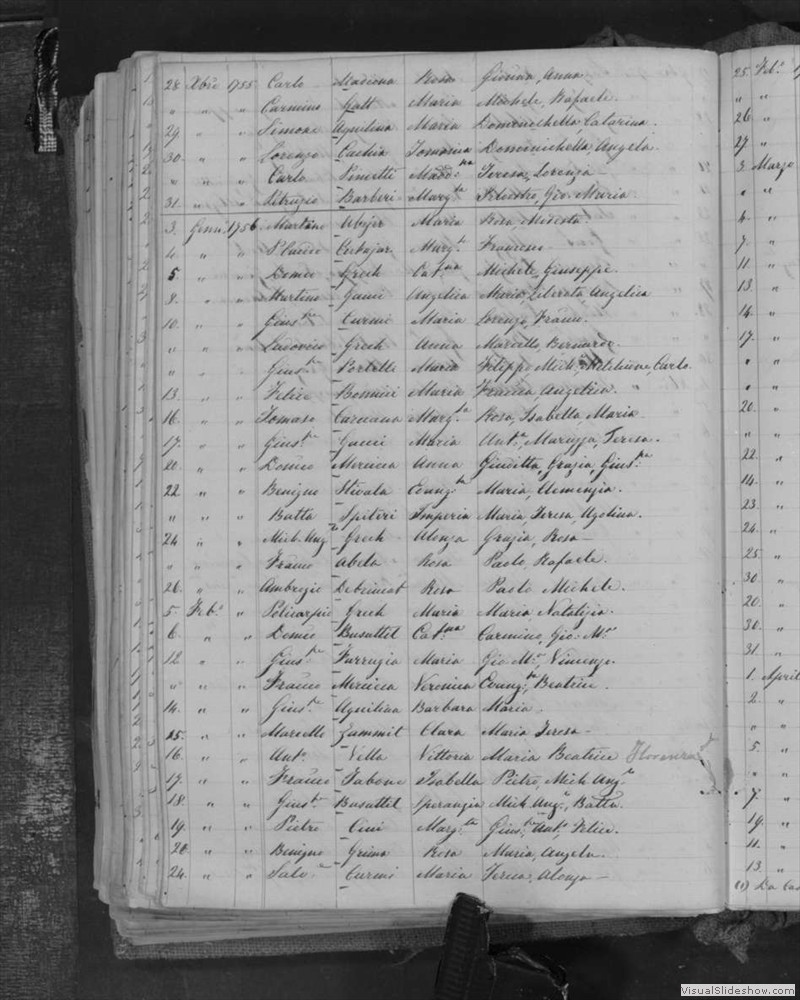 28. Xbre 1755 Carlo Madiona Rosa Gionna, Anna
" " " Carmino Galt Maria Michele, Rafaele.
29. " " Simone Aquilina Maria Domenichella, Catarina.
30. " " Lorenzo Cachia Tomasina Dominichella, Angela.
" " " Carlo Teresa, Lorenza
31. " " Petruzio Barberi Margta Silvestro, Gio. Maria.
3. Genn. 1756 Martino Maria Rosa, Modesta.
4. " " Placido Cutajar Margta Francesco
5. " " Domco Grech Catna Michele, Giuseppe.
8. " " Martino Gauci Angelica Maria, Liberata, Angelica
10. " " Giuspe Curmi Maria Lorenzo, Franco.
" " " Ludovico Grech Anna Marcello, Bernardo.
" " " Giuspe Portelli Maria Filippo, Carlo.
13. " " Felice Bonnici Maria Franca, Angelica.
16. " " Tomaso Caruana Margta Rosa, Isabella, Maria
17. " " Giuspe Gauci Maria Anta, Maruzza, Teresa.
20. " " Domco Mercieca Anna Giuditta, Grazia, Giuspa
22. " " Benigno Stivala Evangta Maria, Clemenzia.
" " " Batta Spiteri Imperia Maria, Teresa, Ugolina.
24 " " Mich. Ang. Grech Alonza Grazia, Rosa
" " " Franco Abela Rosa Paolo, Rafaele.
26. " " Ambrogio Debrincat Rosa Paolo Michele.
5. Feb. " Policarpio Grech Maria Maria Natalizia.
6. " " Domco Busuttil Catna Carmino, Gio. Ma
12 " " Giuspe Farrugia Maria Gio. Ma, Vincenzo.
" " " Franco Mercieca Veronica Evangta, Beatrice.
14. " " Giuspe Aquilina Barbara Maria
25. " " Marcello Zammit Clara Maria Teresa
16. " " Anto Vella Vittoria Maria Beatrice
17. " " Franco Tabone Isabella Pietro, Mich Ang.
18. " " Giuspe Busuttil Speranzia Mich Ang., Batta.
19. " " Pietro Cini Margta Giuspe, Anto, Felice.
20. " " Benigno Grima Rosa Maria, Angela.
24. " " Salve Curmi Maria Teresa, Alonza
25. Feb.
" "
26. "
27. "
3. Marzo
" "
4. "
7. "
11. "
13. "
14. "
17. "
" "
" "
20. "
" "
22. "
14. "
23. "
24. "
25. "
30. "
20. "
30. "
31. "
1. April
2. "
" "
5. "
" "
7. "
19. "
11. "
13. "
(1) Da
VisualSlideshow.com